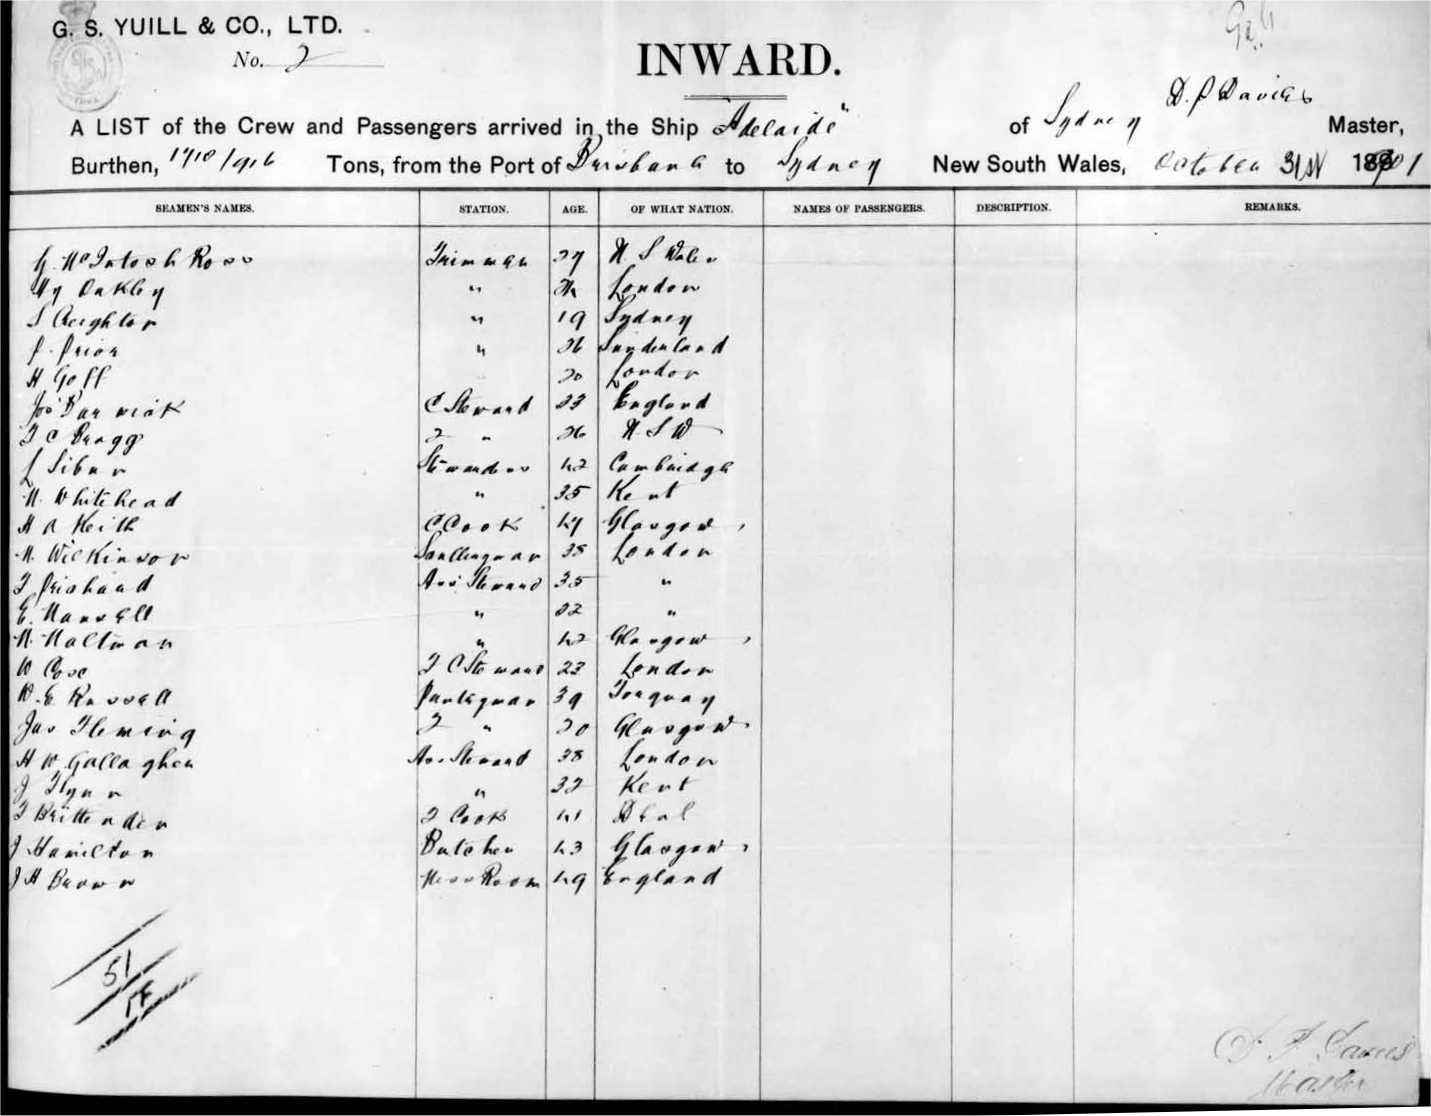 G. S. YUILL & CO., LTD.
No. 2
INWARD.
D. P Davies
A LIST of the Crew and Passengers arrived in the Ship "Adelaide" of Sydney Master,
Burthen, 1710/916 Tons, from the Port of Brisbane to Sydney New South Wales, October 31st 1901
SEAMEN'S NAMES. STATION. AGE. OF WHAT NATION. NAMES OF PASSENGERS. DESCRIPTION. REMARKS.
G. McIntosh Ross Trimmer 27 N. S Wales
Hy Oakley " 24 London
S Creighton " 19 Sydney
P. Prior " 26 Sunderland
H Goff 20 London
Jos Barwick C Steward 33 England
F C Bragg 2 " 26 N. S W
L Sibun Stewardess 42 Cambridge
M. Whitehead " 35 Kent
H A Keith C Cook 47 Glasgow
M. Wilkinson Sculleryman 38 London
T Prishard Ass Steward 35 "
E. Mansell " 22 "
M. Maltman " 42 Glasgow
W Cose F C Steward 23 London
W. E Russell Pantryman 39 Torquay
Jas Fleming 2 " 20 Glasgow
H W Gallagher Ass Steward 38 London
J Flynn " 32 Kent
F Brittenden 2 Cook 41 Deal
J Hamilton Butcher 43 Glasgow
J H Brown Mess Room 49 England
51
D. P. Davies
Master